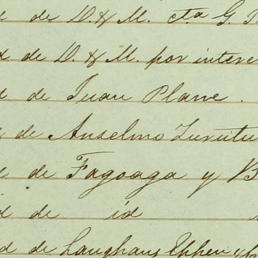 de D. & M. cta G. T
d de D. & M. por intere
d de Juan Plane.
de Anselmo Zurutu
de Fagoaga y B
d de id
d de Langhans Eppen y